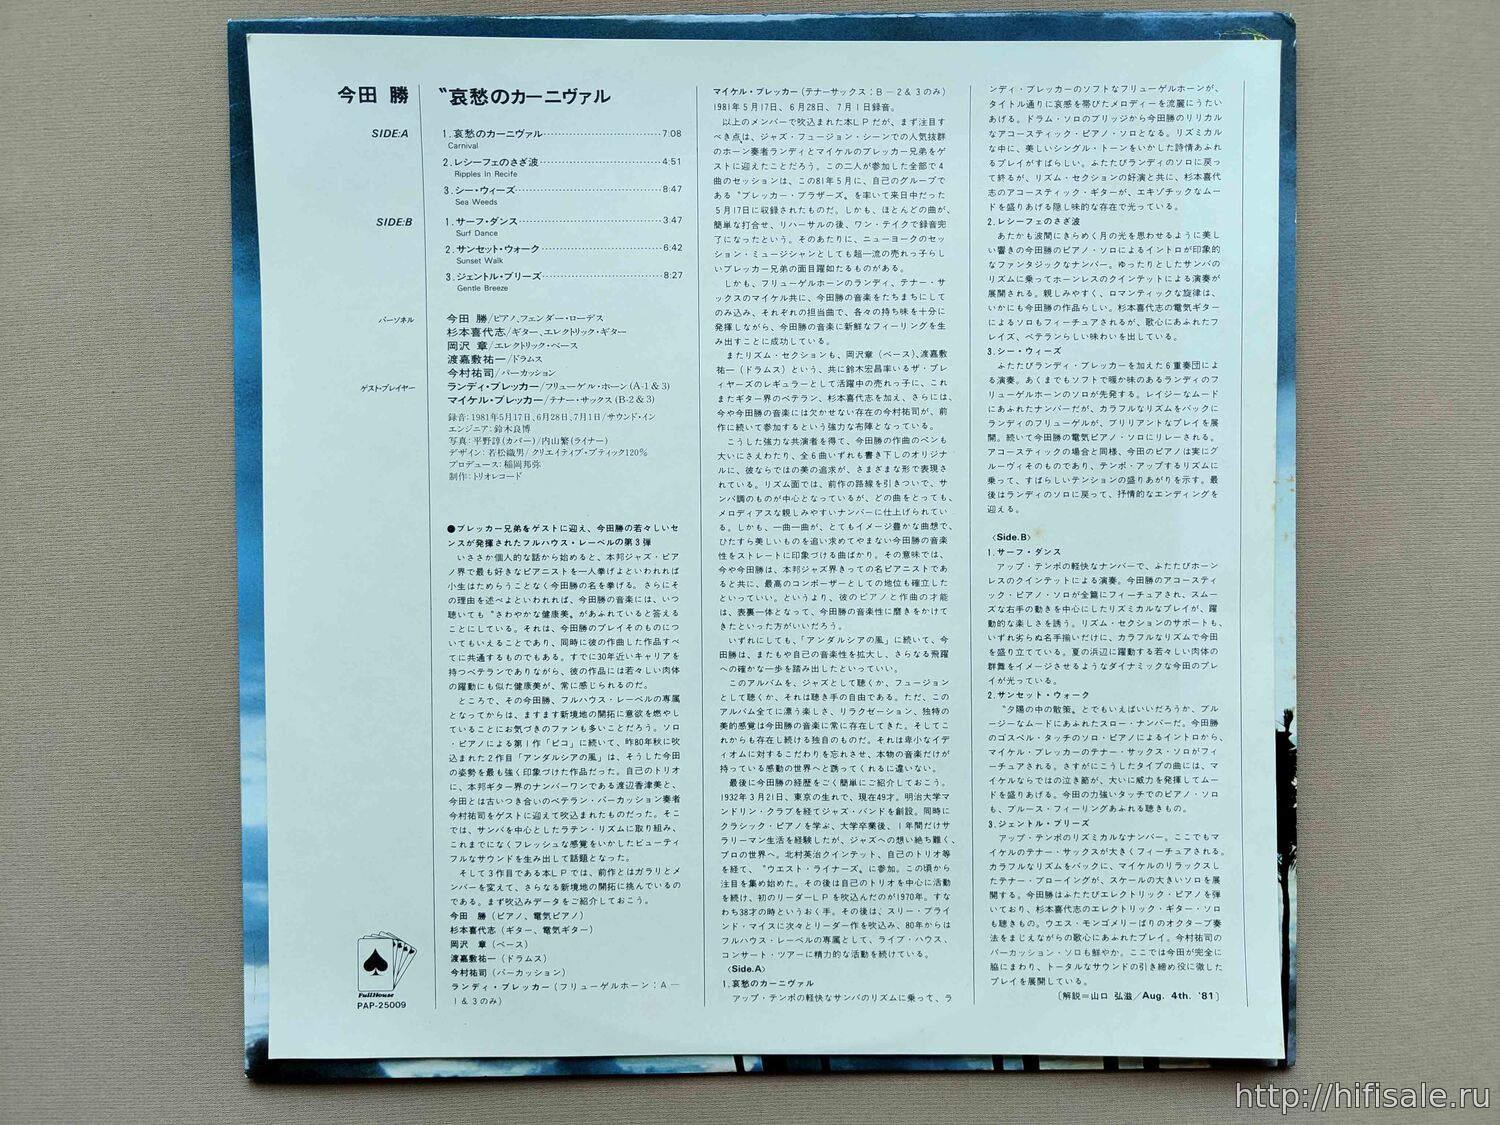 今田 勝
〝哀愁のカーニヴァル
SIDE:A
1.哀愁のカーニヴァル 7:08
Carnival
2.レシーフェのさざ波 4:51
Ripples In Recife
3.シー・ウィーズ 8:47
Sea Weeds
SIDE:B
1.サーフ・ダンス 3:47
Surf Dance
2.サンセット・ウォーク 6:42
Sunset Walk
3.ジェントル・ブリーズ 8:27
Gentle Breeze
パーソネル
今田 勝/ピアノ、フェンダー・ローデス
杉本喜代志/ギター、エレクトリック・ギター
岡沢 章/エレクトリック・ベース
渡嘉敷祐一/ドラムス
今村祐司/パーカッション
ゲスト・プレイヤー
ランディ・ブレッカー/フリューゲル・ホーン(A-1&3)
マイケル・ブレッカー/テナー・サックス(B-2&3)
録音:1981年5月17日、6月28日、7月1日/サウンド・イン
エンジニア:鈴木良博
写真:平野諄(カバー)/内山繁(ライナー)
デザイン:若松織男/クリエイティブ・ブティック120%
プロデュース:稲岡邦弥
制作:トリオレコード
●ブレッカー兄弟をゲストに迎え、今田勝の若々しいセ
ンスが発揮されたフルハウス・レーベルの第3弾
いささか個人的な話から始めると、本邦ジャズ・ピア
ノ界で最も好きなピアニストを一人挙げよといわれれば
小生はためらうことなく今田勝の名を挙げる。さらにそ
の理由を述べよといわれれば、今田勝の音楽には、いつ
聴いても〝さわやかな健康美〟があふれていると答える
ことにしている。それは、今田勝のプレイそのものにつ
いてもいえることであり、同時に彼の作曲した作品すべ
てに共通するものでもある。すでに30年近いキャリアを
持つベテランでありながら、彼の作品には若々しい肉体
の躍動にも似た健康美が、常に感じられるのだ。
ところで、その今田勝、フルハウス・レーベルの専属
となってからは、ますます新境地の開拓に意欲を燃やし
ていることにお気づきのファンも多いことだろう。ソロ
・ピアノによる第1作「ピコ」に続いて、昨80年秋に吹
込まれた2作目「アンダルシアの風」は、そうした今田
の姿勢を最も強く印象づけた作品だった。自己のトリオ
に、本邦ギター界のナンバーワンである渡辺香津美と、
今田とは古いつき合いのベテラン・パーカッション奏者
今村祐司をゲストに迎えて吹込まれたものだった。そこ
では、サンバを中心としたラテン・リズムに取り組み、
これまでになくフレッシュな感覚をいかしたビューティ
フルなサウンドを生み出して話題となった。
そして3作目である本LPでは、前作とはガラリとメ
ンバーを変えて、さらなる新境地の開拓に挑んでいるの
である。まず吹込みデータをご紹介しておこう。
今田 勝(ピアノ、電気ピアノ)
杉本喜代志(ギター、電気ギター)
岡沢 章(ベース)
渡嘉敷祐一(ドラムス)
今村祐司(パーカッション)
ランディ・ブレッカー(フリューゲルホーン:A—
1&3のみ)
FullHouse
PAP-25009
マイケル・ブレッカー(テナーサックス:B—2&3のみ)
1981年5月17日、6月28日、7月1日録音。
以上のメンバーで吹込まれた本LPだが、まず注目す
べき点は、ジャズ・フュージョン・シーンでの人気抜群
のホーン奏者ランディとマイケルのブレッカー兄弟をゲ
ストに迎えたことだろう。この二人が参加した全部で4
曲のセッションは、この81年5月に、自己のグループで
ある〝ブレッカー・ブラザーズ〟を率いて来日中だった
5月17日に収録されたものだ。しかも、ほとんどの曲が、
簡単な打合せ、リハーサルの後、ワン・テイクで録音完
了になったという。そのあたりに、ニューヨークのセッ
ション・ミュージシャンとしても超一流の売れっ子らし
いブレッカー兄弟の面目躍如たるものがある。
しかも、フリューゲルホーンのランディ、テナー・サ
ックスのマイケル共に、今田勝の音楽をたちまちにして
のみ込み、それぞれの担当曲で、各々の持ち味を十分に
発揮しながら、今田勝の音楽に新鮮なフィーリングを生
み出すことに成功している。
またリズム・セクションも、岡沢章(ベース)、渡嘉敷
祐一(ドラムス)という、共に鈴木宏昌率いるザ・プレ
イヤーズのレギュラーとして活躍中の売れっ子に、これ
またギター界のベテラン、杉本喜代志を加え、さらには、
今や今田勝の音楽には欠かせない存在の今村祐司が、前
作に続いて参加するという強力な布陣となっている。
こうした強力な共演者を得て、今田勝の作曲のペンも
大いにさえわたり、全6曲いずれも書き下しのオリジナ
ルに、彼ならではの美の追求が、さまざまな形で表現さ
れている。リズム面では、前作の路線を引きついで、サ
ンバ調のものが中心となっているが、どの曲をとっても、
メロディアスな親しみやすいナンバーに仕上げられてい
る。しかも、一曲一曲が、とてもイメージ豊かな曲想で、
ひたすら美しいものを追い求めてやまない今田勝の音楽
性をストレートに印象づける曲ばかり。その意味では、
今や今田勝は、本邦ジャズ界きっての名ピアニストであ
ると共に、最高のコンポーザーとしての地位も確立した
といっていい。というより、彼のピアノと作曲の才能
は、表裏一体となって、今田勝の音楽性に磨きをかけて
きたといった方がいいだろう。
いずれにしても、「アンダルシアの風」に続いて、今
田勝は、またもや自己の音楽性を拡大し、さらなる飛躍
への確かな一歩を踏み出したといっていい。
このアルバムを、ジャズとして聴くか、フュージョン
として聴くか、それは聴き手の自由である。ただ、この
アルバム全てに漂う楽しさ、リラクゼーション、独特の
美的感覚は今田勝の音楽に常に存在してきた。そしてこ
れからも存在し続ける独自のものだ。それは卑小なイデ
ィオムに対するこだわりを忘れさせ、本物の音楽だけが
持っている感動の世界へと誘ってくれるに違いない。
最後に今田勝の経歴をごく簡単にご紹介しておこう。
1932年3月21日、東京の生れで、現在49才。明治大学マ
ンドリン・クラブを経てジャズ・バンドを創設。同時に
クラシック・ピアノを学ぶ、大学卒業後、1年間だけサ
ラリーマン生活を経験したが、ジャズへの想い絶ち難く、
プロの世界へ。北村英治クインテット、自己のトリオ等
を経て、〝ウエスト・ライナーズ〟に参加。この頃から
注目を集め始めた。その後は自己のトリオを中心に活動
を続け、初のリーダーLPを吹込んだのが1970年。すな
わち38才の時というおく手。その後は、スリー・ブライ
ンド・マイスに次々とリーダー作を吹込み、80年からは
フルハウス・レーベルの専属として、ライブ・ハウス、
コンサート・ツアーに精力的な活動を続けている。
〈Side.A〉
1.哀愁のカーニヴァル
アップ・テンポの軽快なサンバのリズムに乗って、ラ
ンディ・ブレッカーのソフトなフリューゲルホーンが、
タイトル通りに哀感を帯びたメロディーを流麗にうたい
あげる。ドラム・ソロのブリッジから今田勝のリリカル
なアコースティック・ピアノ・ソロとなる。リズミカル
な中に、美しいシングル・トーンをいかした詩情あふれ
るプレイがすばらしい。ふたたびランディのソロに戻っ
て終るが、リズム・セクションの好演と共に、杉本喜代
志のアコースティック・ギターが、エキゾチックなムー
ドを盛りあげる隠し味的な存在で光っている。
2.レシーフェのさざ波
あたかも波間にきらめく月の光を思わせるように美し
い響きの今田勝のピアノ・ソロによるイントロが印象的
なファンタジックなナンバー。ゆったりとしたサンバの
リズムに乗ってホーンレスのクインテットによる演奏が
展開される。親しみやすく、ロマンティックな旋律は、
いかにも今田勝の作品らしい。杉本喜代志の電気ギター
によるソロもフィーチュアされるが、歌心にあふれたフ
レイズ、ベテランらしい味わいを出している。
3.シー・ウィーズ
ふたたびランディ・ブレッカーを加えた6重奏団によ
る演奏。あくまでもソフトで暖か味のあるランディのフ
リューゲルホーンのソロが先発する。レイジーなムード
にあふれたナンバーだが、カラフルなリズムをバックに
ランディのフリューゲルが、ブリリアントなプレイを展
開。続いて今田勝の電気ピアノ・ソロにリレーされる。
アコースティックの場合と同様、今田のピアノは実にグ
ルーヴィそのものであり、テンポ・アップするリズムに
乗って、すばらしいテンションの盛りあがりを示す。最
後はランディのソロに戻って、抒情的なエンディングを
迎える。
〈Side.B〉
1.サーフ・ダンス
アップ・テンポの軽快なナンバーで、ふたたびホーン
レスのクインテットによる演奏。今田勝のアコースティ
ック・ピアノ・ソロが全篇にフィーチュアされ、スムー
ズな右手の動きを中心にしたリズミカルなプレイが、躍
動的な楽しさを誘う。リズム・セクションのサポートも、
いずれ劣らぬ名手揃いだけに、カラフルなリズムで今田
を盛り立てている。夏の浜辺に躍動する若々しい肉体の
群舞をイメージさせるようなダイナミックな今田のプレ
イが光っている。
2.サンセット・ウォーク
〝夕陽の中の散策〟とでもいえばいいだろうか、ブル
ージーなムードにあふれたスロー・ナンバーだ。今田勝
のゴスペル・タッチのソロ・ピアノによるイントロから、
マイケル・ブレッカーのテナー・サックス・ソロがフィ
ーチュアされる。さすがにこうしたタイプの曲には、マ
イケルならではの泣き節が、大いに威力を発揮してムー
ドを盛りあげる。今田の力強いタッチでのピアノ・ソロ
も、ブルース・フィーリングあふれる聴きもの。
3.ジェントル・ブリーズ
アップ・テンポのリズミカルなナンバー。ここでもマ
イケルのテナー・サックスが大きくフィーチュアされる。
カラフルなリズムをバックに、マイケルのリラックスし
たテナー・ブローイングが、スケールの大きいソロを展
開する。今田勝はふたたびエレクトリック・ピアノを弾
いており、杉本喜代志のエレクトリック・ギター・ソロ
も聴きもの。ウエス・モンゴメリーばりのオクターブ奏
法をまじえながらの歌心にあふれたプレイ。今村祐司の
パーカッション・ソロも鮮やか。ここでは今田が完全に
脇にまわり、トータルなサウンドの引き締め役に徹した
プレイを展開している。
〔解説=山口 弘滋/Aug. 4th. '81〕
http://hifisale.ru